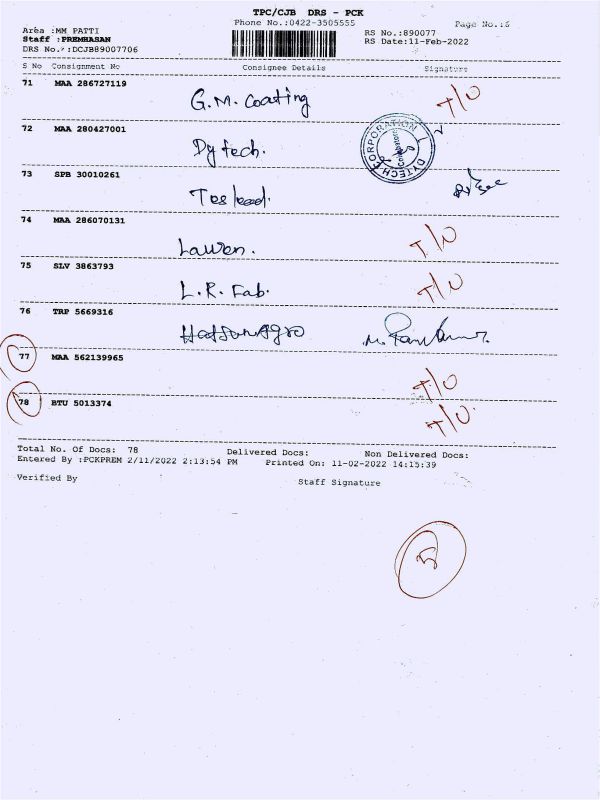 TPC/CJB DRS - PCK
Phone No.:0422-3505555
Page No.:6
Area :MM PATTI
Staff :PREMHASAN
DRS No.:DCJB89007706
RS No.:890077
RS Date:11-Feb-2022
S No Consignment No Consignee Details Signature
71 MAA 286727119
G.M. Coating T/O
72 MAA 280427001
Dytech.
DYTECH CORPORATION
Coimbatore
73 SPB 30010261
74 MAA 286070131
T/O
75 SLV 3863793
L.R. Fab. T/O
76 TRP 5669316
Hatsun Agro
77 MAA 562139965
T/O
78 BTU 5013374
T/O
Total No. Of Docs: 78 Delivered Docs: Non Delivered Docs:
Entered By :PCKPREM 2/11/2022 2:13:54 PM Printed On: 11-02-2022 14:15:39
Verified By Staff Signature